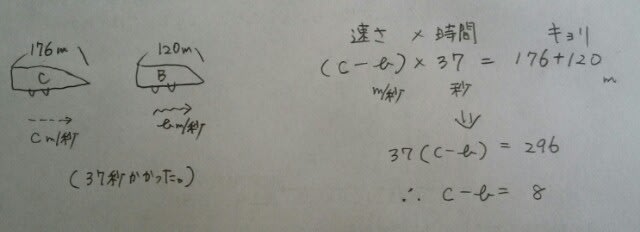 176m
120m
C
B
Cm/秒
bm/秒
(37秒かかった。)
速さ × 時間 キョリ
(C-b) × 37 = 176+120 m
m/秒 秒
⇓
37(C-b) = 296
∴ C-b = 8